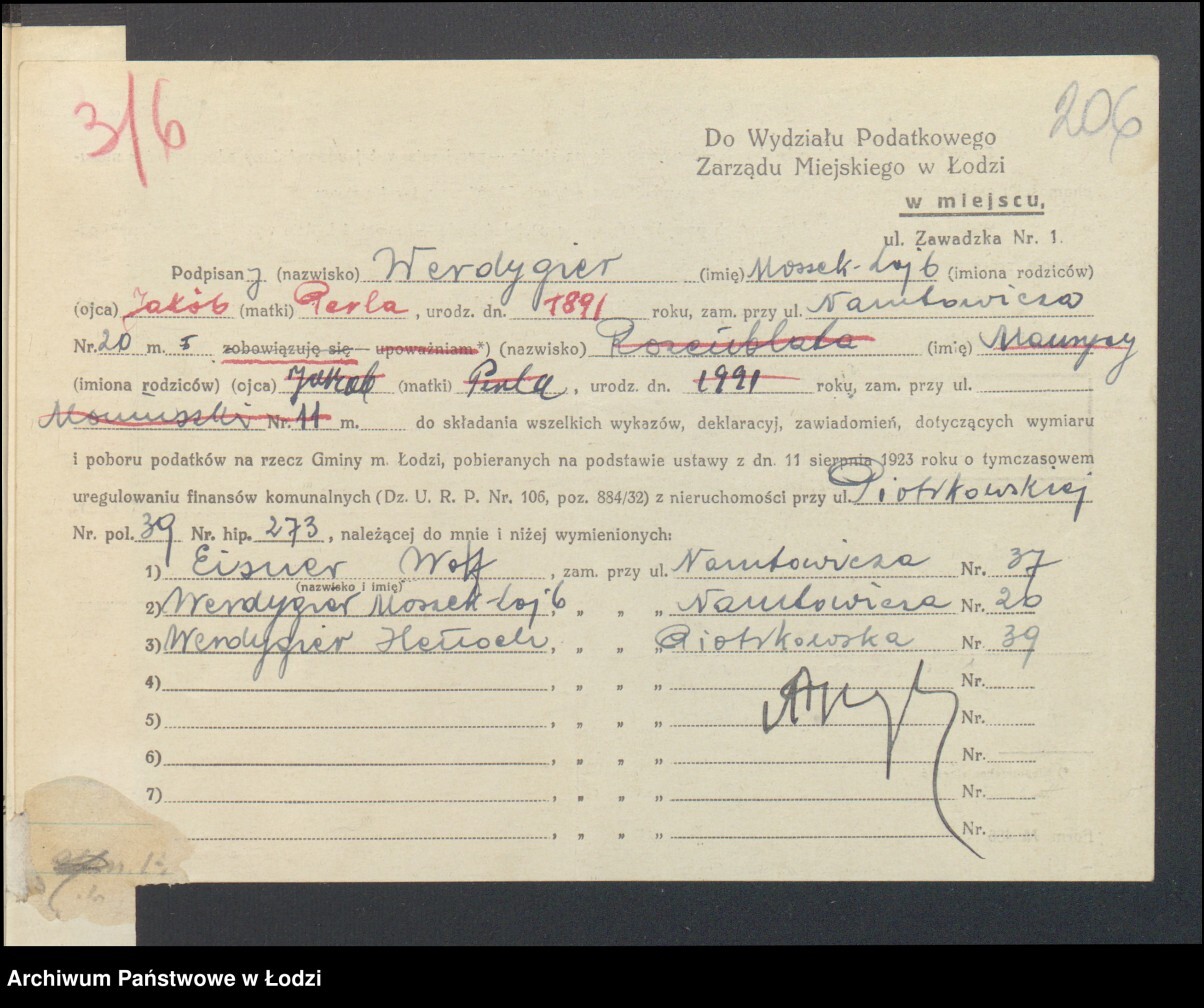 3/6
206
Do Wydziału Podatkowego
Zarządu Miejskiego w Łodzi
w miejscu,
ul. Zawadzka Nr. 1.
Podpisany (nazwisko) Werdygier (imię) Mossek-Lajb (imiona rodziców)
(ojca) Jakób (matki) Perla, urodz. dn. 1891 roku, zam. przy ul. Narutowicza
Nr. 20 m. 5 zobowiązuję się upoważniam*) (nazwisko) Rosenblata (imię) Maurycy
(imiona rodziców) (ojca) Jakob (matki) Perla, urodz. dn. 1991 roku, zam. przy ul.
Moniuszki Nr. 11 m. do składania wszelkich wykazów, deklaracyj, zawiadomień, dotyczących wymiaru
i poboru podatków na rzecz Gminy m. Łodzi, pobieranych na podstawie ustawy z dn. 11 sierpnia 1923 roku o tymczasowem
uregulowaniu finansów komunalnych (Dz. U. R. P. Nr. 106, poz. 884/32) z nieruchomości przy ul. Piotrkowskiej
Nr. pol. 39 Nr. hip. 273, należącej do mnie i niżej wymienionych:
1) Eisner Wolf, zam. przy ul. Narutowicza Nr. 37
(nazwisko i imię)
2) Werdygier Mossek-Lajb, „ „ „ Narutowicza Nr. 20
3) Werdygier Henoch, „ „ „ Piotrkowska Nr. 39
4) , „ „ „ Nr.
5) , „ „ „ Nr.
6) , „ „ „ Nr.
7) , „ „ „ Nr.
, „ „ „ Nr.
Archiwum Państwowe w Łodzi